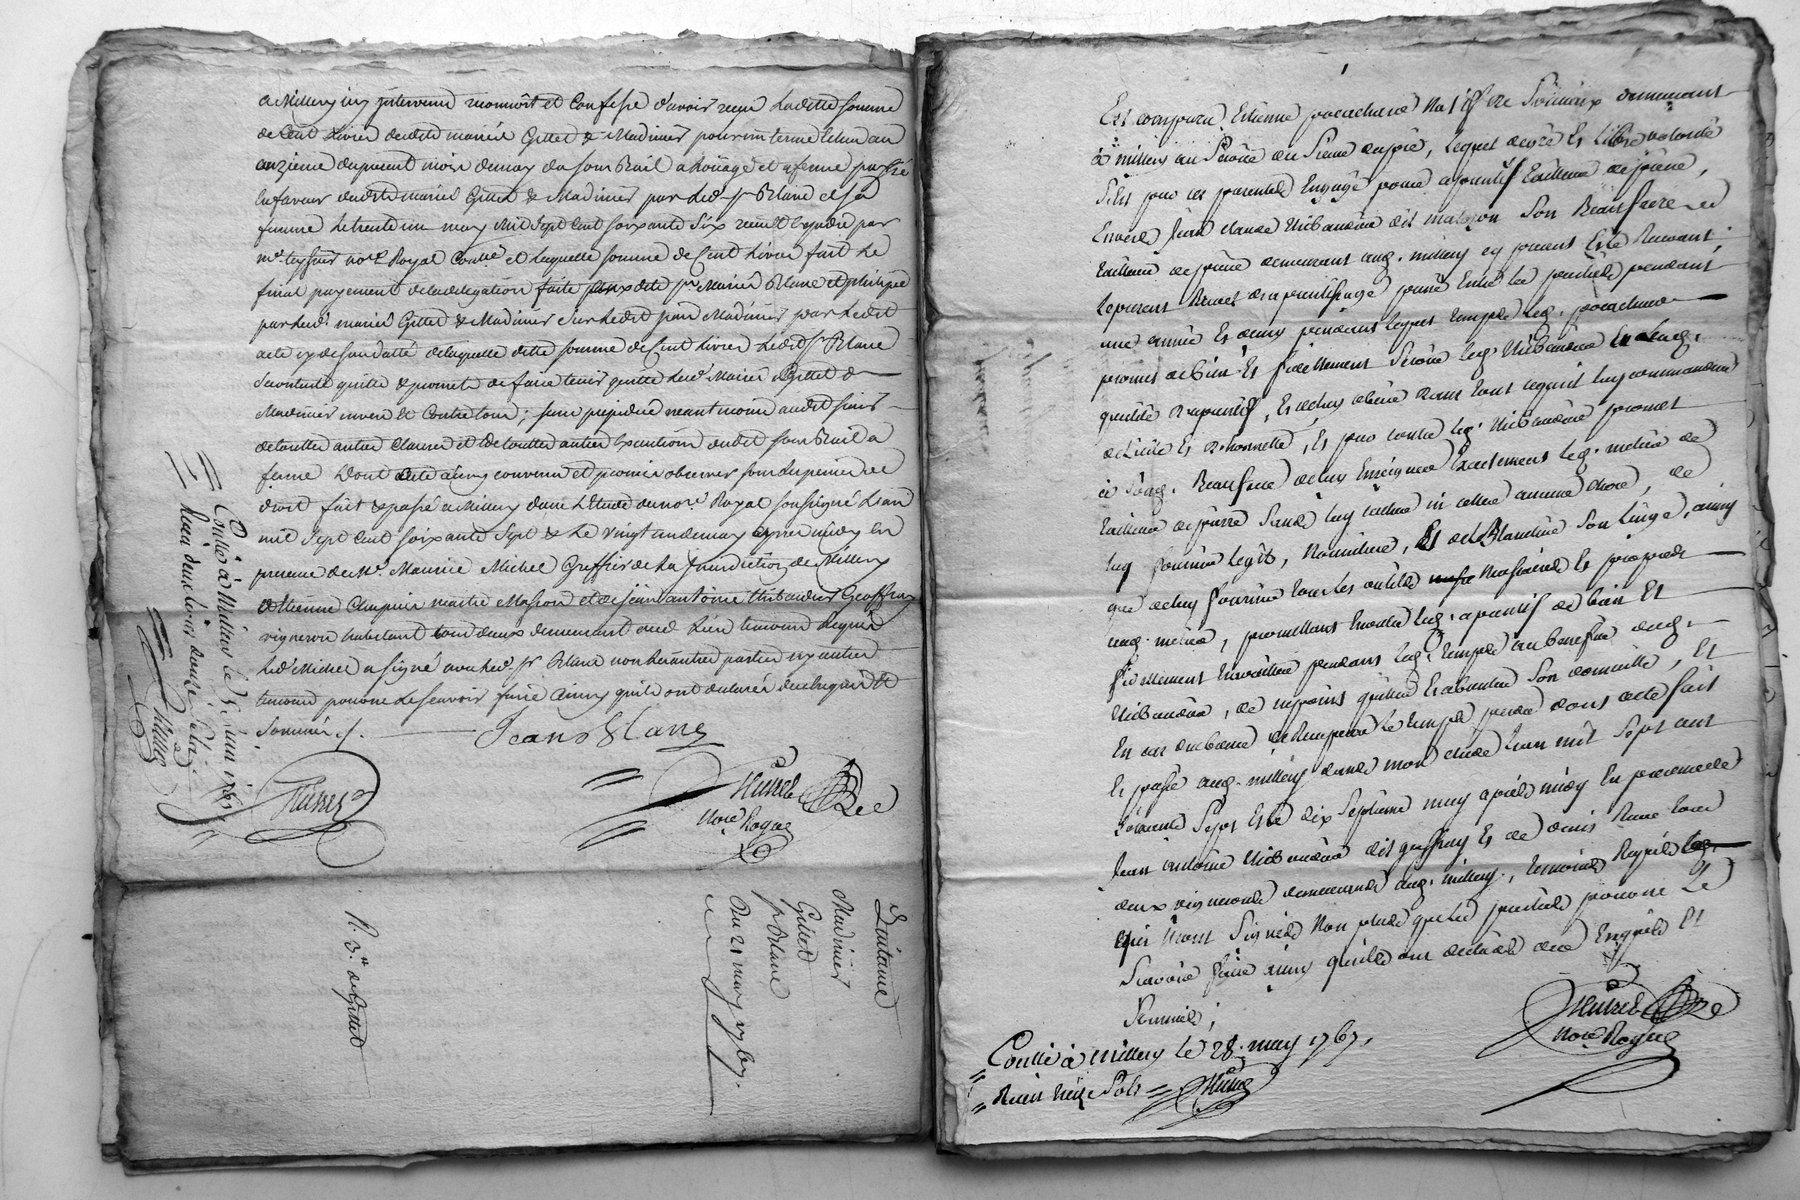 a Millery icy intervenu reconnoit et confesse d'avoir receu ladette somme
de Cent livres desdits mariés Gillet & Madinier pour un terme echeu au
onzieme du present mois de may du sous Bail a et afferme passé
en faveur desdits mariés Gillet & Madinier par led. sr Blanc et sa
femme le trente un may mil sept cent soixante six receu et par
Me nore Royal et laquelle somme de Cent livres fait le
final payement de la delegation faite auxdits sr Mariés Blanc et
par lesd. mariés Gillet & Madinier sur ledit Madinier par ledit
acte cy dessus datté de laquelle ditte somme de Cent livres ledit sr Blanc
se contente quitte & promet de faire tenir quitte lesd. Mariés Gillet &
Madinier envers & Contre tous; sans prejudice neantmoins audit sieur
de touttes autres Clauses et de touttes autres Execution dudit sous Bail a
ferme Dont acte ainsy convenu et promis observer sous les peines de
droit fait & passé a Millery dans l'Etude du nore Royal soussigné L'an
mil sept cent soixante sept & le vingt un de may apres midy en
presence de Me. Maurice Michel Greffier de la Jurisdiction de Millery
& Etienne maitre Masson et de jean antoine thibaudier Geoffray
vigneron habitant tous deux demeurant aud. Lieu temoins requis
led. Michel a signé avec led. sr Blanc non les autres parties ny autre
temoins pour ne le scavoir faire ainsy quils ont declaré de ce enquis &
sommés ./.
Jean Blanc
nore Royal
Contlé à Millery le Vt juin 1767
Reçu deux livres douze sols
Quittance
Madinier
Gillet
p Blanc
Du 21 may 1767.
p. 3e. de Gillet
Est comparu Etienne demeurant
à millery au Service du Sieur dupré, lequel de gré Et libre volonté
S'est par ces presentes Engagé pour aprentif tailleur de pierre,
Envers Jean claude thibaudier dit masson son Beaufrere
tailleur de pierre demeurant aud. millery cy present Et le Recevant;
le present Brevet d'aprentissage passé Entre les parties pendant
une année Et demy pendant lequel temps led.
promet de bien Et fidellement Servir led. thibaudier En lad.
qualité d'aprentif, Et de luy obeir dans tout ce qu'il luy commandera
de licite Et d'honnette, Et par contre led. thibaudier promet
à sond. Beaufrere de luy Enseigner Exactement led. metier de
tailleur de pierre Sans luy cacher ni celler aucune chose, de
luy fournir le gît, Nourriture, Et de Blanchir son linge, ainsy
que de luy fournir tous les outils Necessaires Et propres
aud. metier, promettant Encore led. aprentif de bien Et
fidellement travailler pendant led. temps au benefice dud.
thibaudier, de ne point quitter Et absenter son domicille, Et
En cas d'absence de Remplacer le temps perdu dont acte fait
Et passé aud. millery dans mon etude l'an mil Sept cent
soixante Sept Et le dix septieme may après midy En presence de
Jean antoine thibaudier dit geoffray Et de denis tous
deux vignerons demeurants aud. millery, temoins Requis
qui n'ont Signés Non plus que les parties pour ne le
Scavoir faire ainsy quils ont declaré de ce Enquis Et
Sommés;
nore Royal
Contlé à Millery le 28. may 1767.
Reçu treize Sols